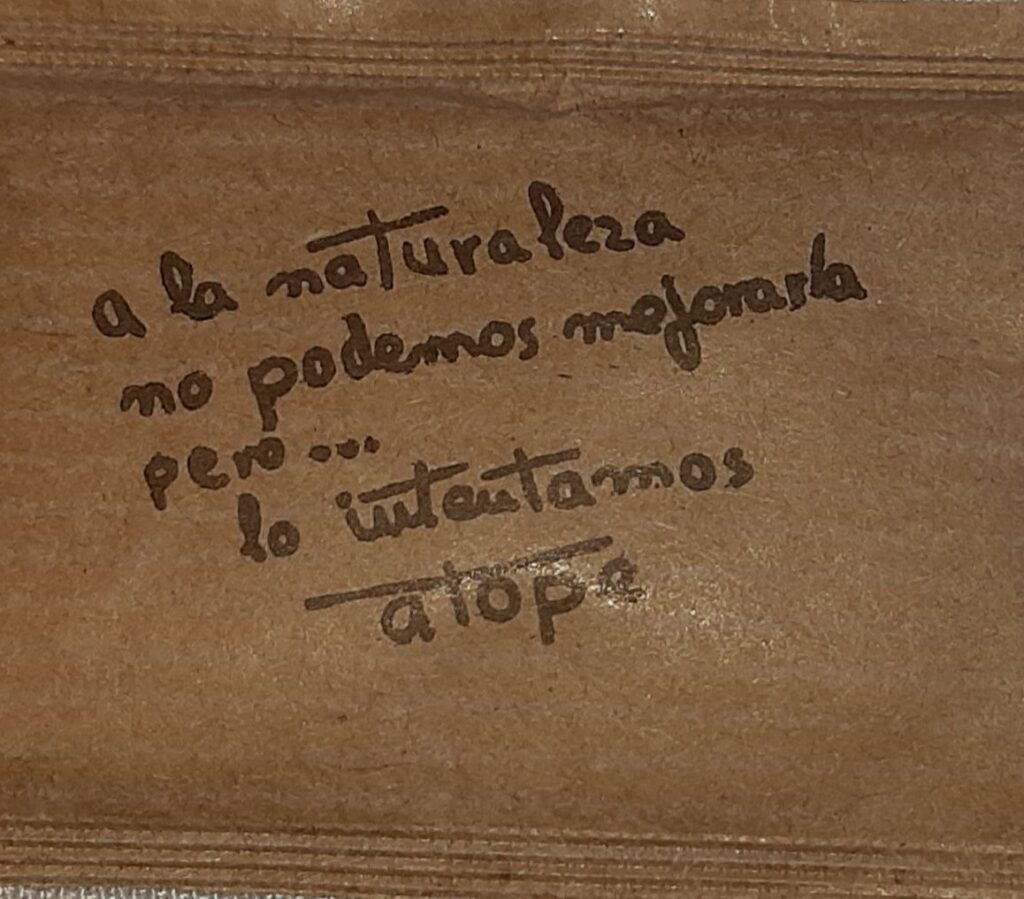 a la naturaleza
no podemos mejorarla
pero...
lo intentamos
atope